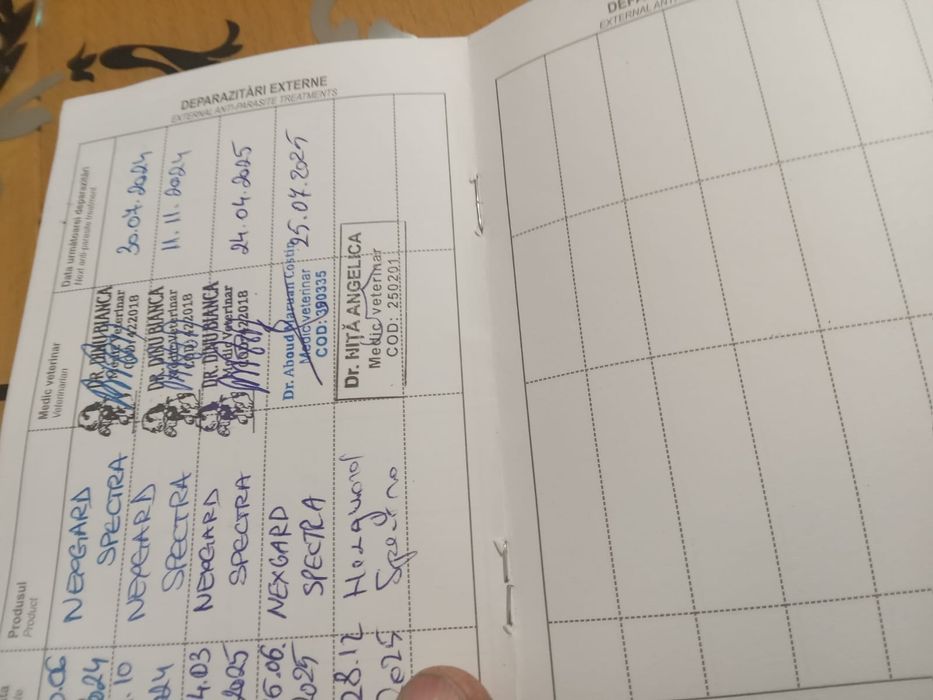 DEPARAZITĂRI EXTERNE
EXTERNAL ANTI-PARASITE TREATMENTS
Produsul
Product
Medic veterinar
Veterinarian
Data următoarei deparazitări
Next anti-parasite treatment
2024
NEXGARD
SPECTRA
DR. DINU BIANCA
Medic Veterinar
30.07.2024
.10
2024
NEXGARD
SPECTRA
DR. DINU BIANCA
Medic Veterinar
11.11.2024
4.03
2025
NEXGARD
SPECTRA
DR. DINU BIANCA
Medic Veterinar
24.04.2025
6.06.
2025
NEXGARD
SPECTRA
Dr. Aboud Marwan Costin
Medic veterinar
COD: 390335
25.07.2025
28.12
2025
Dr. NIȚĂ ANGELICA
Medic veterinar
COD: 250201
EXTERNAL